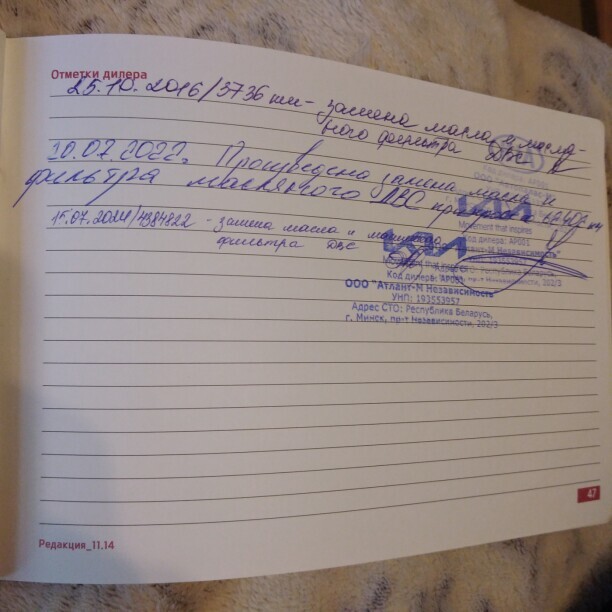 Отметки дилера
25.10.2016/3736 км - замена масла и масля-
ного фильтра ДВС
10.07.2022г. Произведена замена масла и
фильтра масляного ДВС
15.07.2024/4384822 - замена масла и
фильтра ДВС
KIA
Movement that inspires
Код дилера: AP001
"Атлант-М Независимость"
KIA
Код дилера: AP001
ООО "Атлант-М Независимость"
УНП: 193553957
Адрес СТО: Республика Беларусь,
г. Минск, пр-т Независимости, 202/3
47
Редакция_11.14